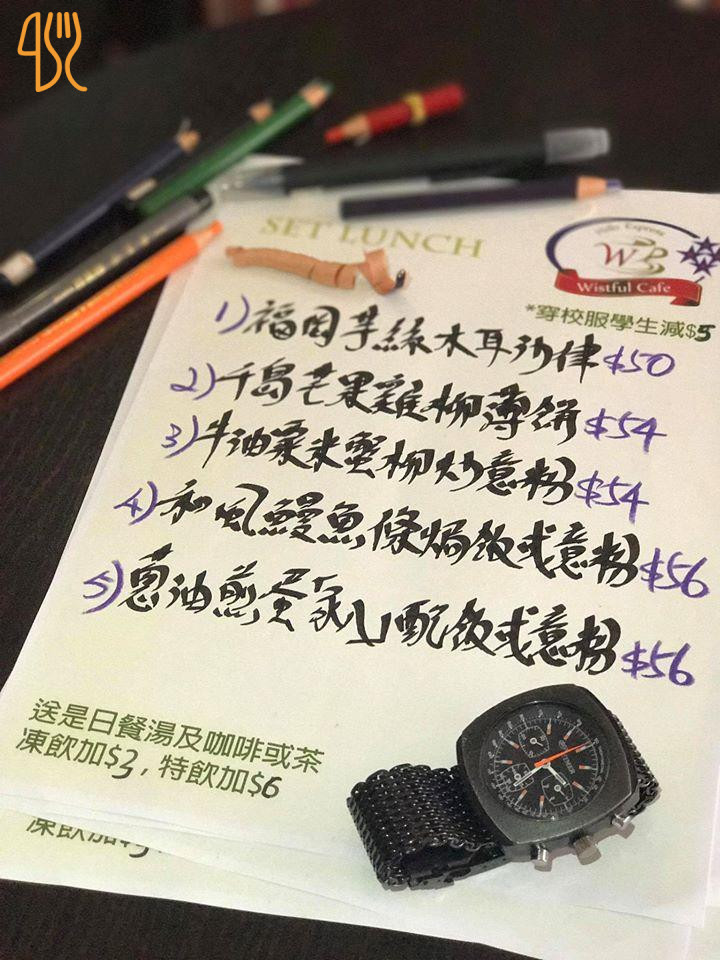 SET LUNCH
Hello Express
Wistful Cafe
*穿校服學生減$5
1)福岡芋絲木耳沙律 $50
2)千島芒果雞柳薄餅 $54
3)牛油粟米蟹柳炒意粉 $54
4)和風鰻魚條焗飯或意粉 $56
5)蔥油煎蛋 配飯或意粉 $56
送是日餐湯及咖啡或茶
凍飲加$3,特飲加$6
凍飲加$3